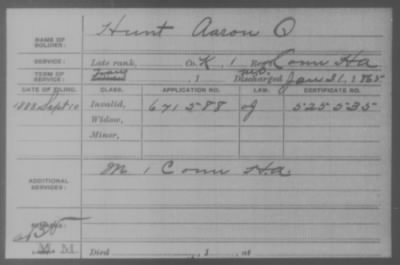 NAME OF SOLDIER: Hunt Aaron Q
SERVICE: Late rank, Co. K, 1 Reg't Conn Ha
TERM OF SERVICE: , 1 Discharged Jan 31, 1865
DATE OF FILING. CLASS. APPLICATION NO. LAW. CERTIFICATE NO.
1888 Sept 10 Invalid, 671588 525535
Widow,
Minor,
ADDITIONAL SERVICES: M 1 Conn H.a.
REMARKS:
Died , 1 , at